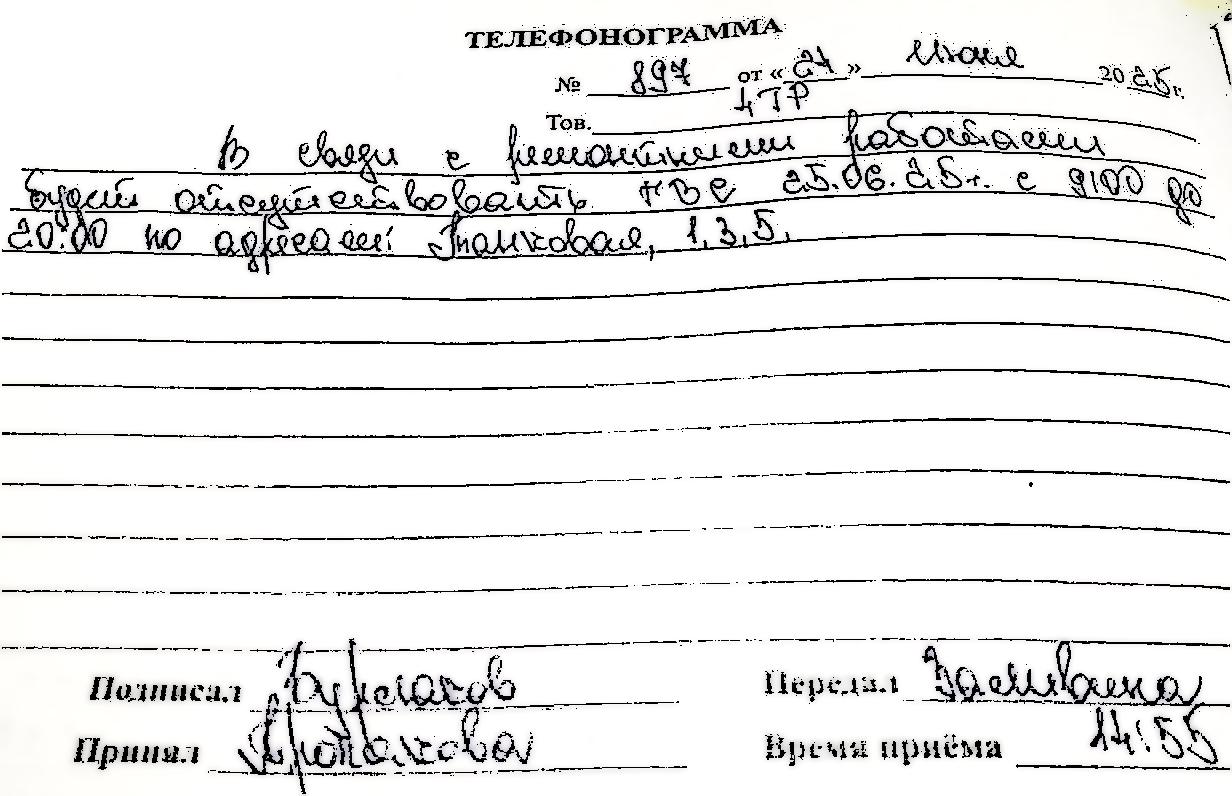 ТЕЛЕФОНОГРАММА
№ 897 от «24» Июня 2025г.
Тов. 4ТР
В связи с ремонтными работами
будет отсутствовать ГВС 25.06.25г. с 9:00 до
20:00 по адресам: Танковая, 1,3,5.
Подписал Бурлаков Передал
Принял Время приёма 14:55